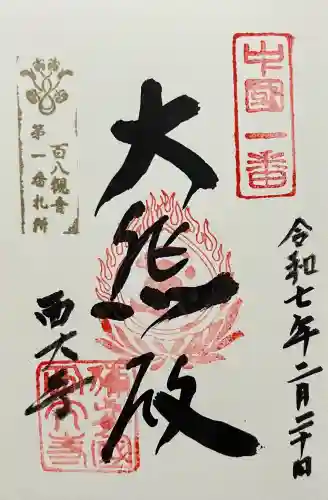 中國一番
令和七年二月二十日
大悲殿
百八観音
第一番札所
西大寺